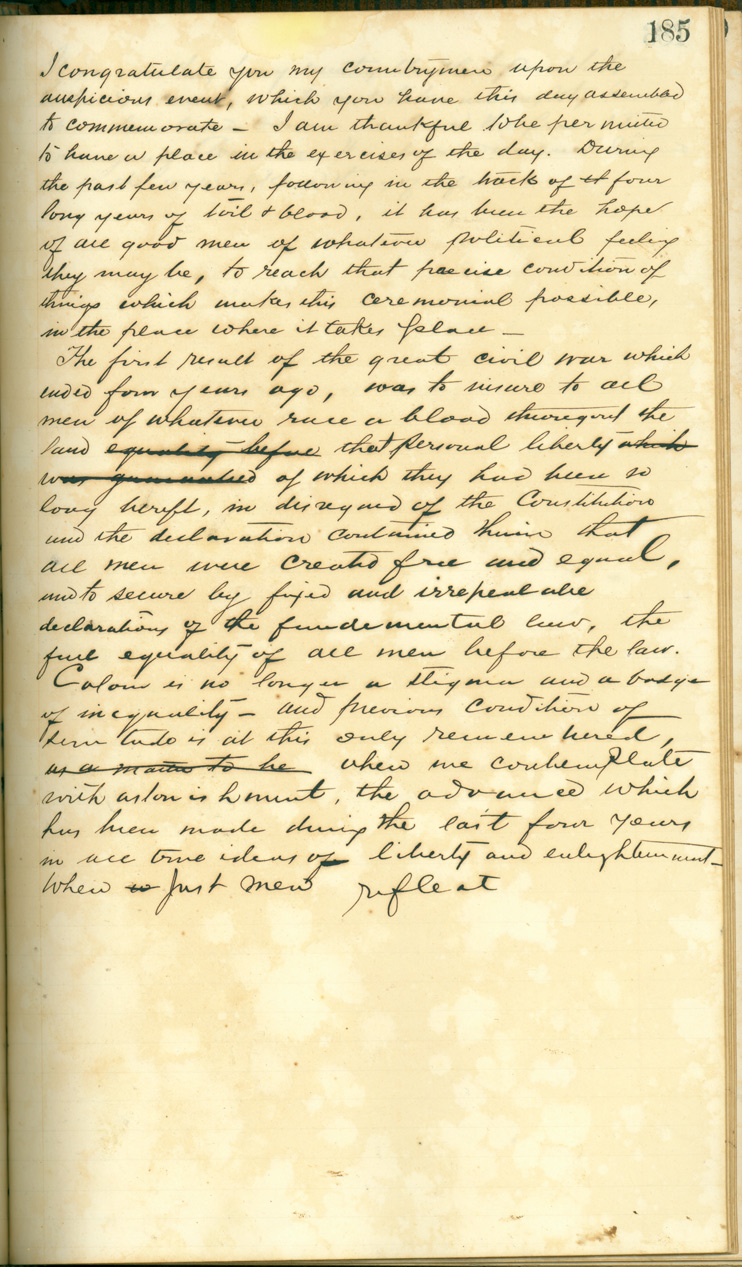 185
I congratulate you my countrymen upon the
auspicious event, which you have this day assembled
to commemorate – I am thankful to be permitted
to have a place in the exercises of the day. During
the past few years, following in the track of four
long years of toil & blood, it has been the hope
of all good men of whatever political feeling
they may be, to reach that precise condition of
things which makes this ceremonial possible,
in the place where it takes place –
The first result of the great civil war which
ended four years ago, was to insure to all
men of whatever race or blood throughout the
land equality before that personal liberty which
was guaranteed of which they had been so
long bereft, in disregard of the Constitution
and the declaration contained therein that
all men were created free and equal,
and to secure by fixed and irrepealable
declarations of the fundemental law, the
full equality of all men before the law.
Colour is no longer a stigma and a badge
of inequality – and previous condition of
servitude is at this only remembered,
as a matter to be when we contemplate
with astonishment, the advance which
has been made during the last four years
in all true ideas of liberty and enlightenment –
When just men reflect